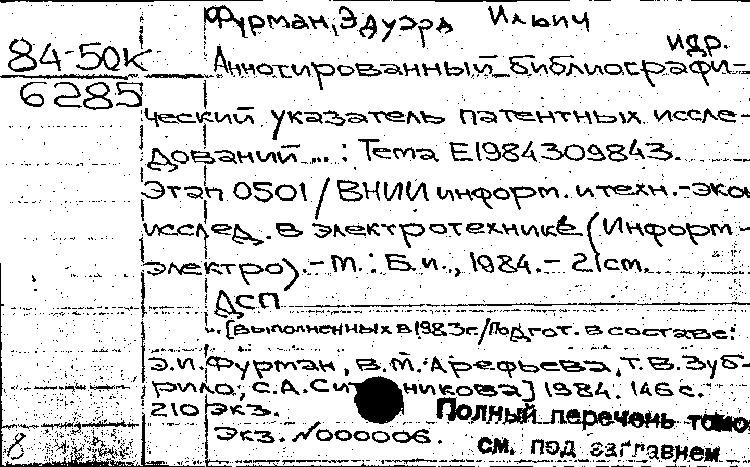 Фурман, Эдуард Ильич
и др.
84-50к
Аннотированный библиографи-
6285
ческий указатель патентных иссле-
дований ... : Тема Е1984309843.
Этап 0501 / ВНИИ информ. и техн.-экон
исслед. в электротехнике (Информ-
электро). - М.: Б.и., 1984. - 21 см.
ДСП
... [выполненных в 1983г./Подгот. в составе:
Э.И. Фурман, В.М. Арефьева, Т.В. Зуб-
рило, С.А. 1984. 146 с.
210 экз.
Полный перечень томо
экз. N000006.
см. под заглавнем
8